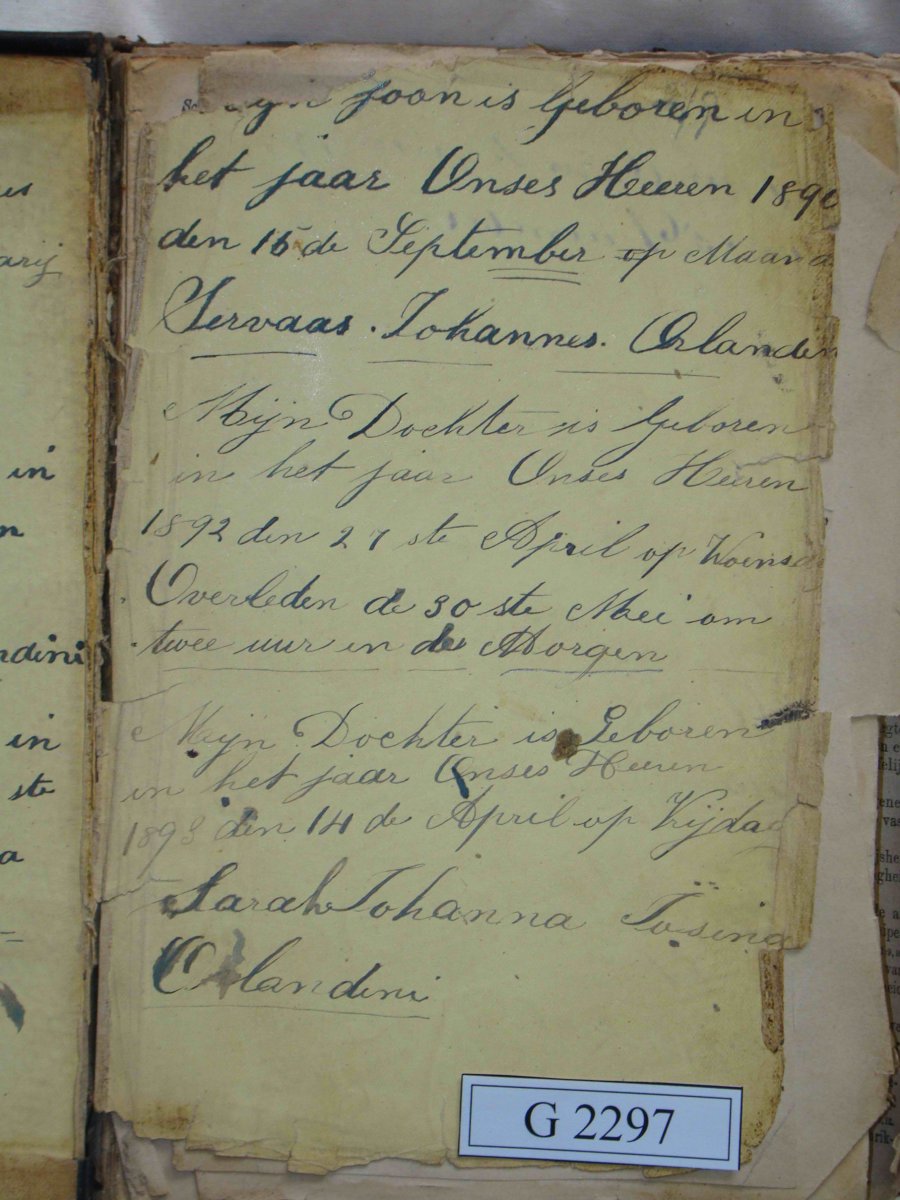 Mijn Joon is Geboren in
het jaar Onses Heeren 1890
den 15 de September op Maanda
Servaas. Johannes. Orlanden
Mijn Dochter is Geboren
in het jaar Onses Heeren
1892 den 27 ste April op Woensd
Overleden de 30 ste Mei om
twee uur in de Morgen
Mijn Dochter is Geboren
in het jaar Onses Heeren
1893 den 14 de April op Vrijdag
Sarah Johanna
Orlandini
G 2297
is
arij
in
n
ndini
in
ste
a